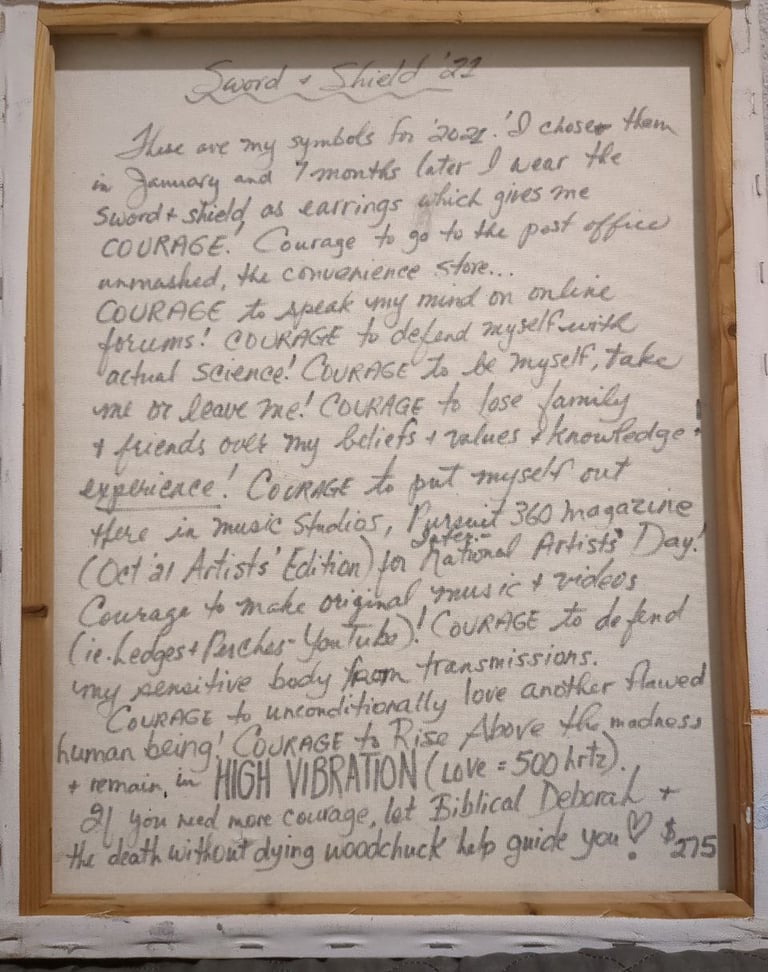 Sword + Shield '21
These are my symbols for '2021.' I chose them
in January and 7 months later I wear the
sword + shield, as earrings which gives me
COURAGE! Courage to go to the post office
unmasked, the convenience store...
COURAGE to speak my mind on online
forums! COURAGE to defend myself with
actual science! COURAGE to be myself, take
me or leave me! COURAGE to lose family
+ friends over my beliefs + values + knowledge +
experience! COURAGE to put myself out
there in music studios, Pursuit 360 magazine
(Oct '21 Artists' Edition) for Inter-National Artists' Day!
Courage to make original music + videos
(ie. Ledges + Perches - YouTube)! COURAGE to defend
my sensitive body from transmissions.
COURAGE to unconditionally love another flawed
human being! COURAGE to Rise Above the madness
+ remain, in HIGH VIBRATION (Love = 500 hrtz).
If you need more courage, let Biblical Deborah +
the death without dying woodchuck help guide you ♡! $275